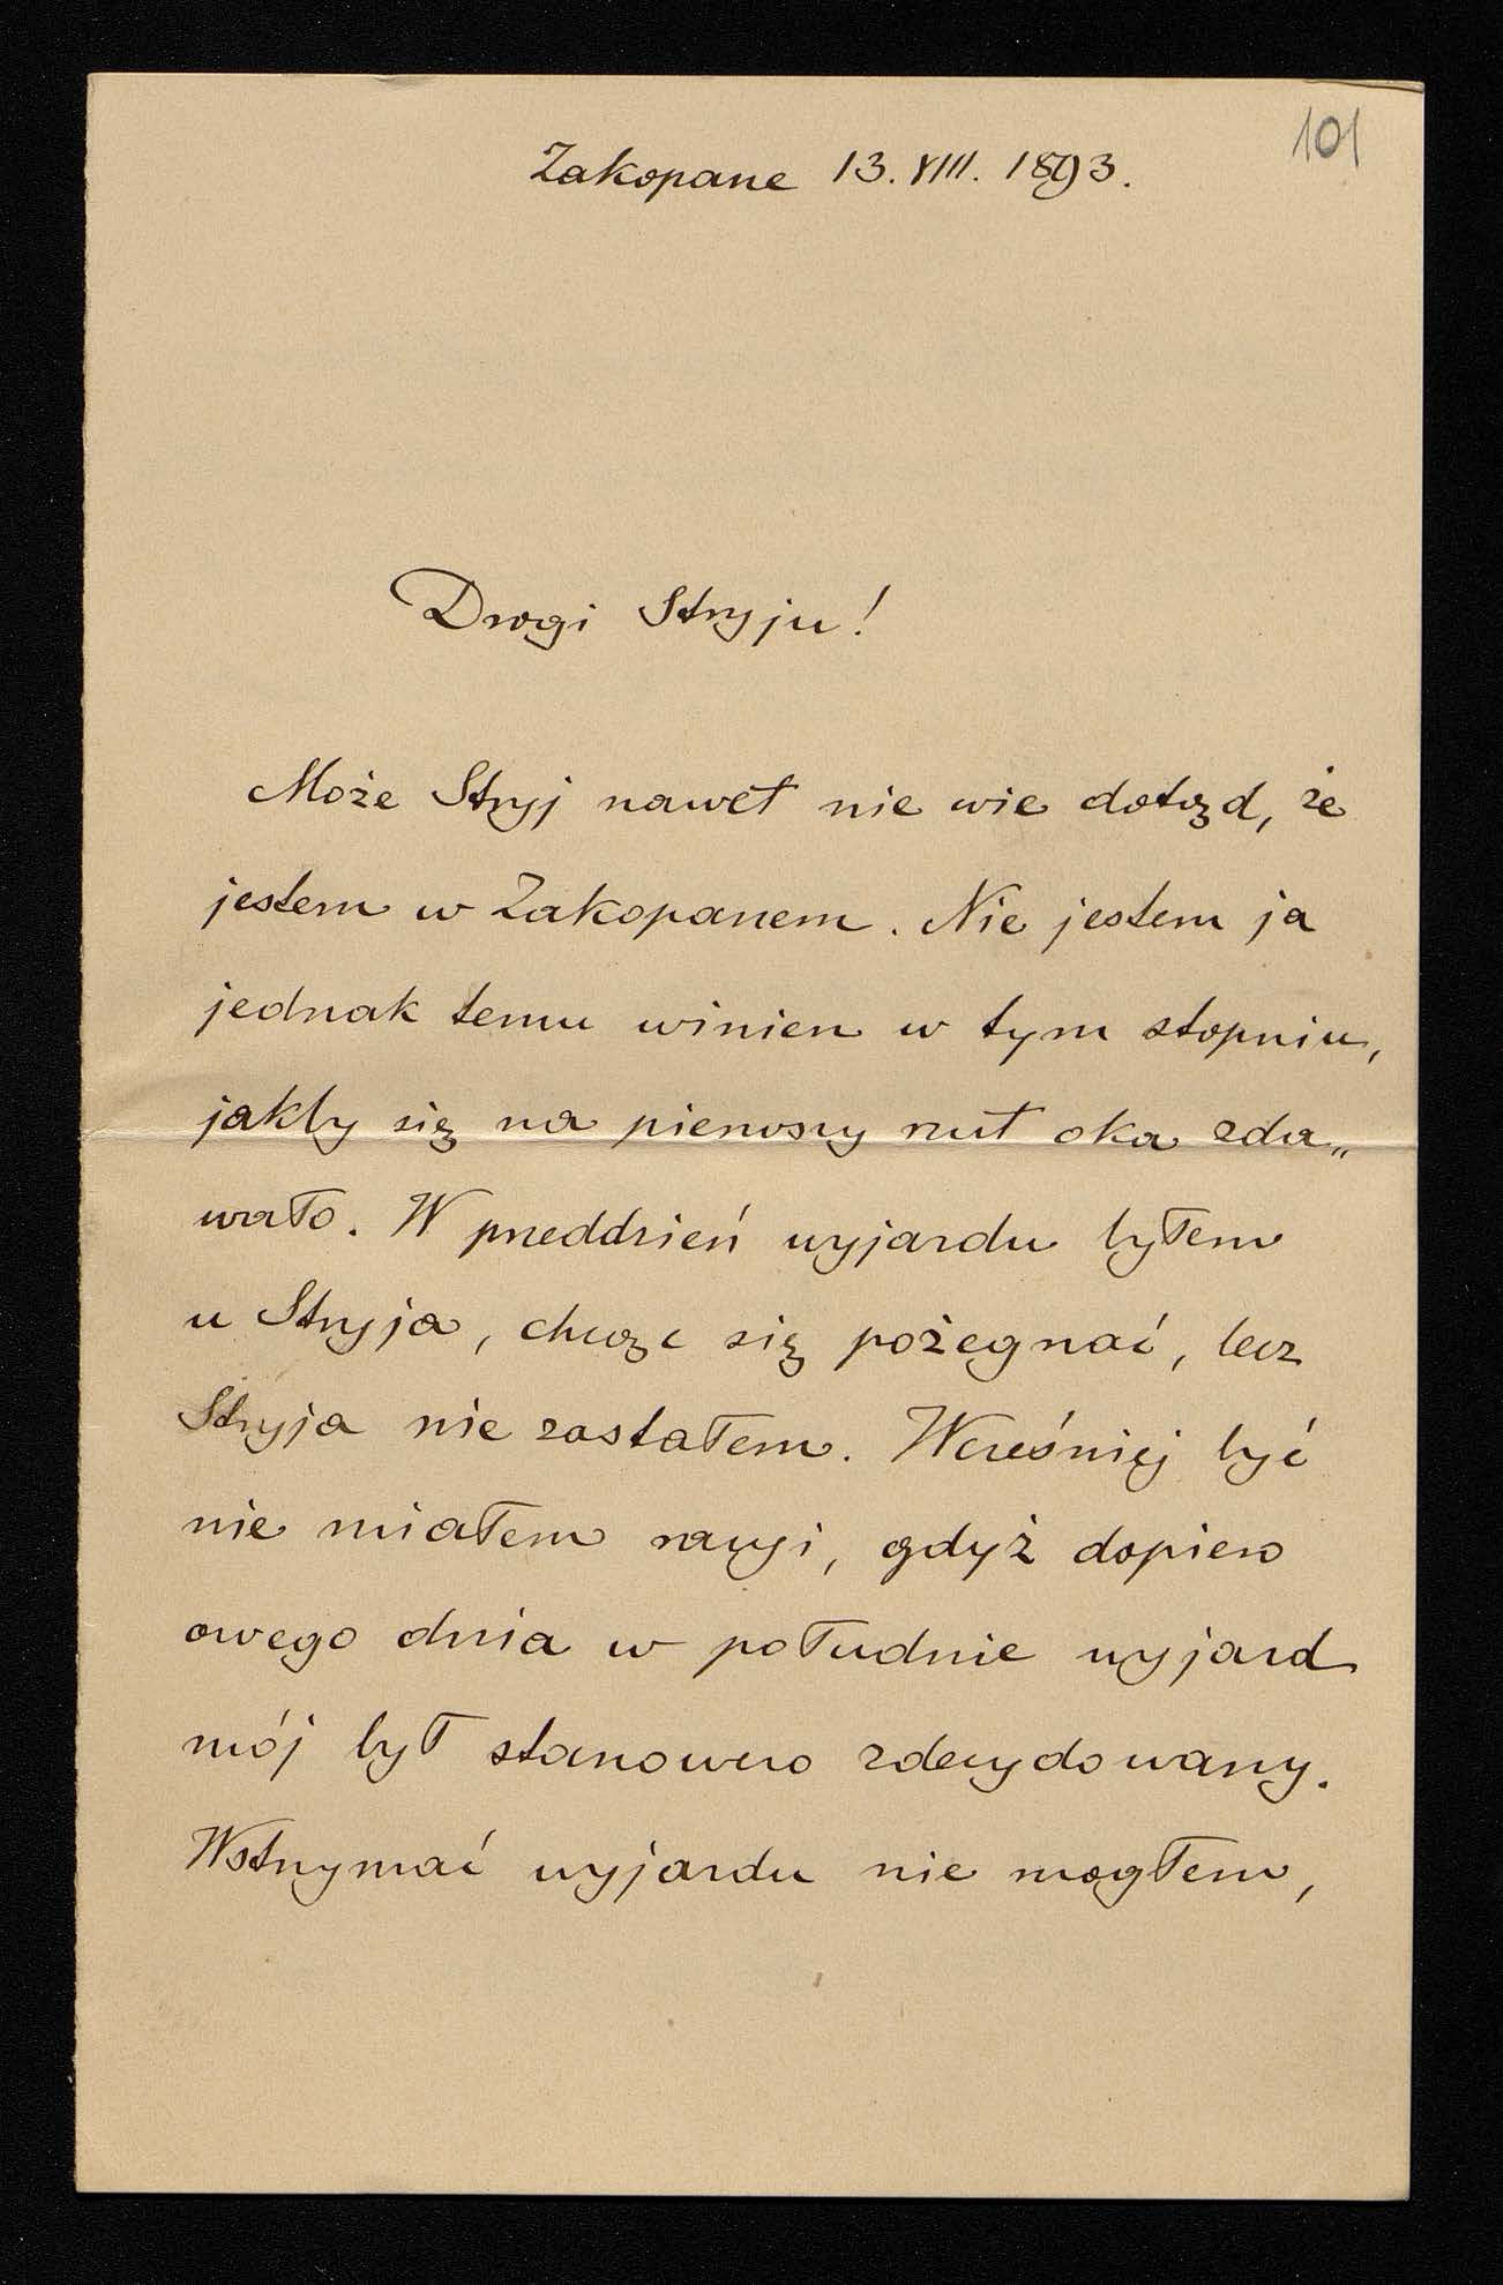 101
Zakopane 13. VIII. 1893.
Drogi Stryju!
Może Stryj nawet nie wie dotąd, że
jestem w Zakopanem. Nie jestem ja
jednak temu winien w tym stopniu,
jakby się na pierwszy rzut oka zda„
wało. W przeddzień wyjazdu byłem
u Stryja, chcąc się pożegnać, lecz
Stryja nie zastałem. Wcześniej być
nie miałem racyi, gdyż dopiero
owego dnia w południe wyjazd
mój był stanowczo zdecydowany.
Wstrzymać wyjazdu nie mogłem,